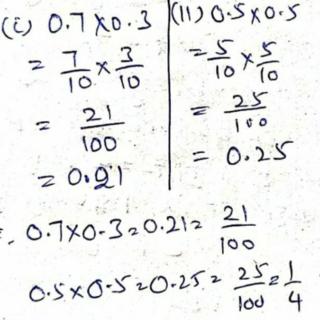 (i) 0.7 x 0.3
= 7/10 x 3/10
= 21/100
= 0.21
(11) 0.5 x 0.5
= 5/10 x 5/10
= 25/100
= 0.25
0.7x0.3=0.21= 21/100
0.5x0.5=0.25= 25/100=1/4